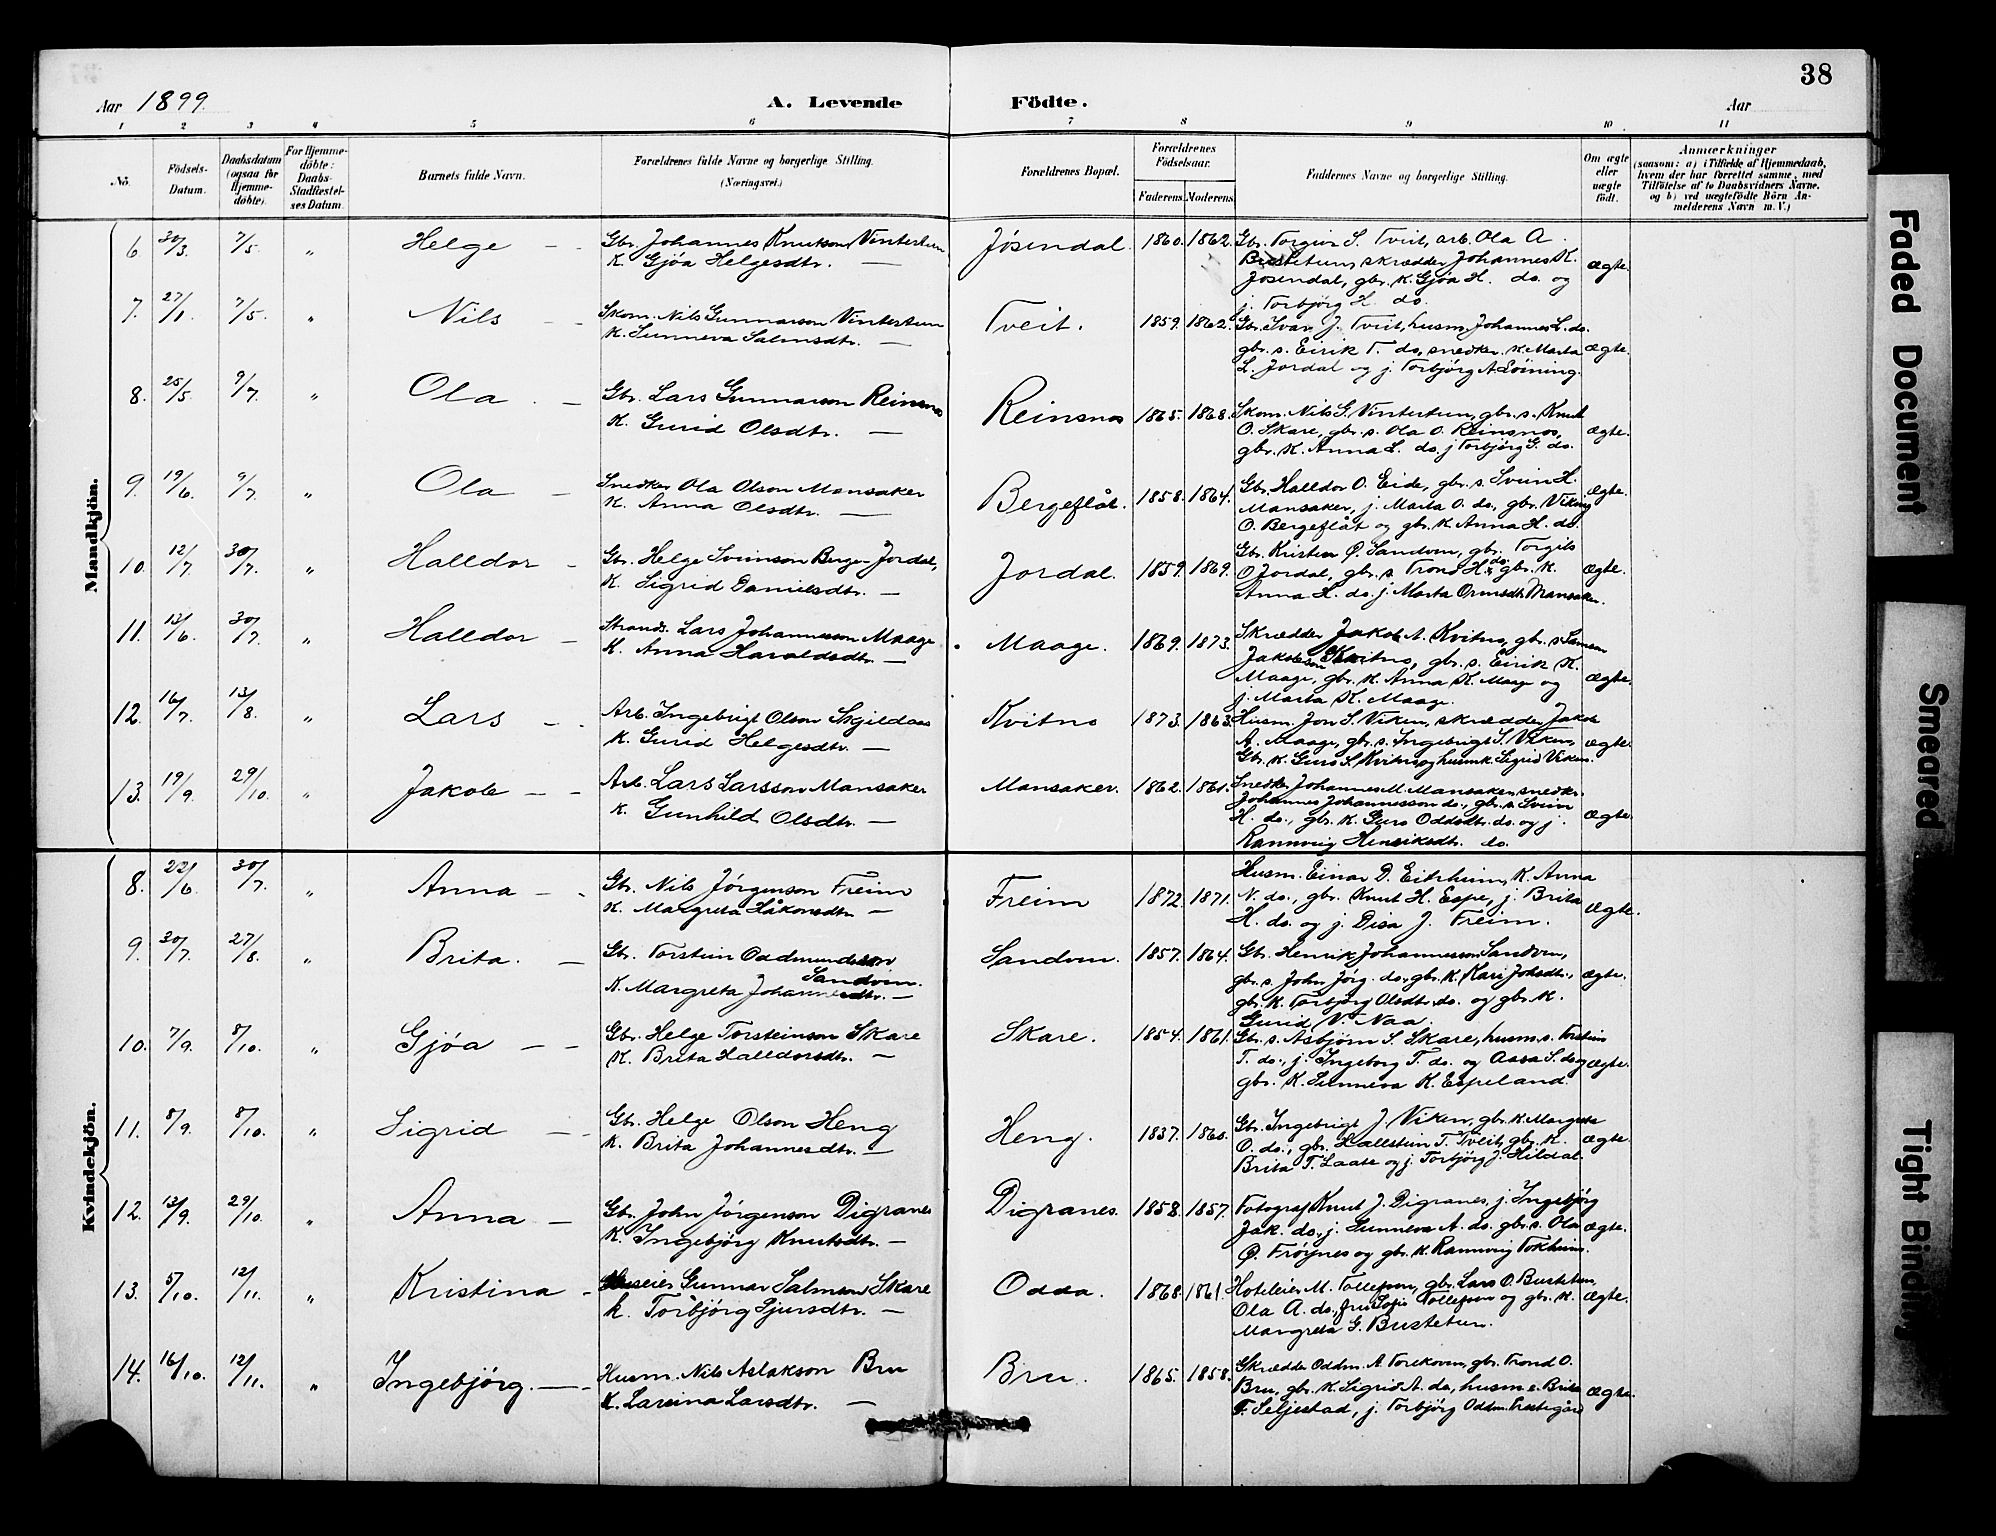 38
Aar 1899.
A. Levende Födte.
Aar
1 2 3 4 5 6 7 8 9 10 11
No.
Födsels-Datum.
Daabsdatum (ogsaa for Hjemme-döbte).
For Hjemme-döbte: Daabs-Stadfæstel-ses Datum.
Barnets fulde Navn.
Forældrenes fulde Navne og borgerlige Stilling. (Næringsvei.)
Forældrenes Bopæl.
Forældrenes Födselsaar.
Faderens Moderens
Faddernes Navne og borgerlige Stilling.
Om ægte eller uægte födt.
Anmærkninger
(saasom: a) i Tilfælde af Hjemmedaab, hvem der har forrettet samme, med Tilföielse af to Daabsvidners Navne, og b) ved uægtefödte Börn An-melderens Navn m. V.)
Mandkjön.
6. 30/3. 7/5. " Helge — Gbr. Johannes Knutson Vintertun Jösendal. 1860. 1862. Gbr. Torgeir S. Tveit, arb. Ola A.
K. Gjöa Helgesdtr. — Bustetun, skrædder Johannes K.
Jösendal, gbr. k. Gjöa H. do. og ægte.
j. Torbjörg H. do.
7. 27/1. 7/5. " Nils — Skom. Nils Gunnarson Vintertun Tveit. 1859. 1862. Gbr. Ivar J. Tveit, husm. Johannes L. do.
K. Sunneva Salmsdtr. — gbr. s. Eirik T. do, snedker. k. Marta ægte.
L. Jordal og j. Torbjörg A. Löining.
8. 25/5. 9/7. " Ola — Gbr. Lars Gunnarson Reinsnos Reinsnos 1865. 1868. Skom. Nils G. Vintertun, gbr. s. Knut
K. Gurid Olsdtr. — O. Skare, gbr. s. Ola O. Reinsnos, ægte.
gbr. k. Anna L. do. j Torbjörg G. do.
9. 19/6. 9/7. " Ola — Snedker Ola Olson Mansaker Bergeflåt. 1858. 1864. Gbr. Halldor O. Eide, gbr. s. Svein H. ægte.
K. Anna Olsdtr. — Mansaker, j. Marta O. do, gbr. Viking
O. Bergeflåt og gbr. k. Anna H. do.
10. 12/7. 30/7. " Halldor — Gbr. Helge Sveinson Berge-Jordal, Jordal. 1859. 1869. Gbr. Kristen P. Sandven, gbr. Torgils
K. Sigrid Danielsdtr. — O Jordal, gbr. s. Trond H. do. gbr. k. ægte.
Anna H. do. j. Marta Ormsdtr Mansaker.
11. 13/6. 30/7. " Halldor — Strands. Lars Johannesson Maage Maage. 1869. 1873. Skrædder Jakob A. Kvitno, gbr. s Samson
K. Anna Haraldsdtr. — Jakobson Kvitno, gbr. s. Eirik K.
Maage, gbr. k. Anna K. Maage og ægte.
j. Marta K. Maage.
12. 16/7. 13/8. " Lars — Arb. Ingebrigt Olson Skjildaas Kvitno 1873. 1863. Husm. Jon S. Viken, skrædder Jakob
K. Gurid Helgesdtr. — A. Maage, gbr. s. Ingebrigt S. Viken, ægte.
Gbr. k. Guro S. Kvitno og husm k. Sigrid Viken.
13. 19/9. 29/10. " Jakob — Arb. Lars Larsson Mansaker Mansaker. 1862. 1861. Snedker Johannes M. Mansaker, snedkr.
K. Gunhild Olsdtr. — Johannes Johannesson do., gbr. s. Svein
H. do., gbr. k. Guro Oddsdtr. do. og j. ægte.
Rannveig Henriksdtr. do.
Kvindekjön.
8. 22/6. 30/7. " Anna — Gbr. Nils Jörgenson Freim Freim 1872. 1871. Husm. Einar D. Eitrheim, K. Anna
K. Margreta Håkonsdtr — N. do., gbr. Knut H. Espe, j. Brita ægte.
H. do. og j. Disa J. Freim.
9. 30/7. 27/8. " Brita. — Gbr. Torstein Oddmundsson Sandven. Sandven. 1857. 1864. Gbr. Henrik Johannesson Sandven,
K. Margreta Johannesdtr. — gbr. s. John Jörg. do., gbr. k. Kari Johsdtr., ægte.
gbr. k. Torbjörg Olsdtr. do. og gbr. k.
Gurid V. Naa.
10. 7/9. 8/10. " Gjöa — Gbr. Helge Torsteinson Skare Skare. 1854. 1861. Gbr. s. Asbjörn S. Skare, husm. s. Torstein
K. Brita Halldorsdtr. — T. do., j. Ingeborg T. do. og Aasa S. do og ægte.
gbr. k. Sunneva K. Espeland.
11. 8/9. 8/10. " Sigrid — Gbr. Helge Olson Heng Heng. 1837. 1860. Gbr. Ingebrigt J. Viken, gbr. k. Margreta
K. Brita Johannesdtr. — O. do., gbr. Hallstein T. Tveit, gbr. k. ægte.
Brita T. Laate og j. Torbjörg J. Hildal.
12. 13/9. 29/10. " Anna — Gbr. John Jörgenson Digranes Digranes. 1858. 1857. Fotograf Knut J. Digranes, j. Ingebjörg
K. Ingebjörg Knutsdtr. — Jak. do., j. Sunneva A. do. gbr. s. Ola ægte.
P. Fröynes og gbr. k. Rannveig Tokheim.
13. 5/10. 12/11. " Kristina — Huseier Gunnar Salmson Skare Odda. 1868. 1861. Hoteleier M. Tollefsen, gbr. Lars O. Bustetun,
K. Torbjörg Gjursdtr. — Ola A. do., fru Sofie Tollefsen og gbr. k. ægte.
Margreta G. Bustetun.
14. 16/10. 12/11. " Ingebjörg. — Husm. Nils Aslakson Bru Bru. 1865. 1858. Skrædder Oddm. A. Torekoven, gbr. Trond O.
K. Larsina Larsdtr. — Bru, gbr. k. Sigrid A. do, husm e. Brita ægte.
T. Seljestad, j. Torbjörg Oddm. Prestegård
Faded Document
Smeared
Tight Binding